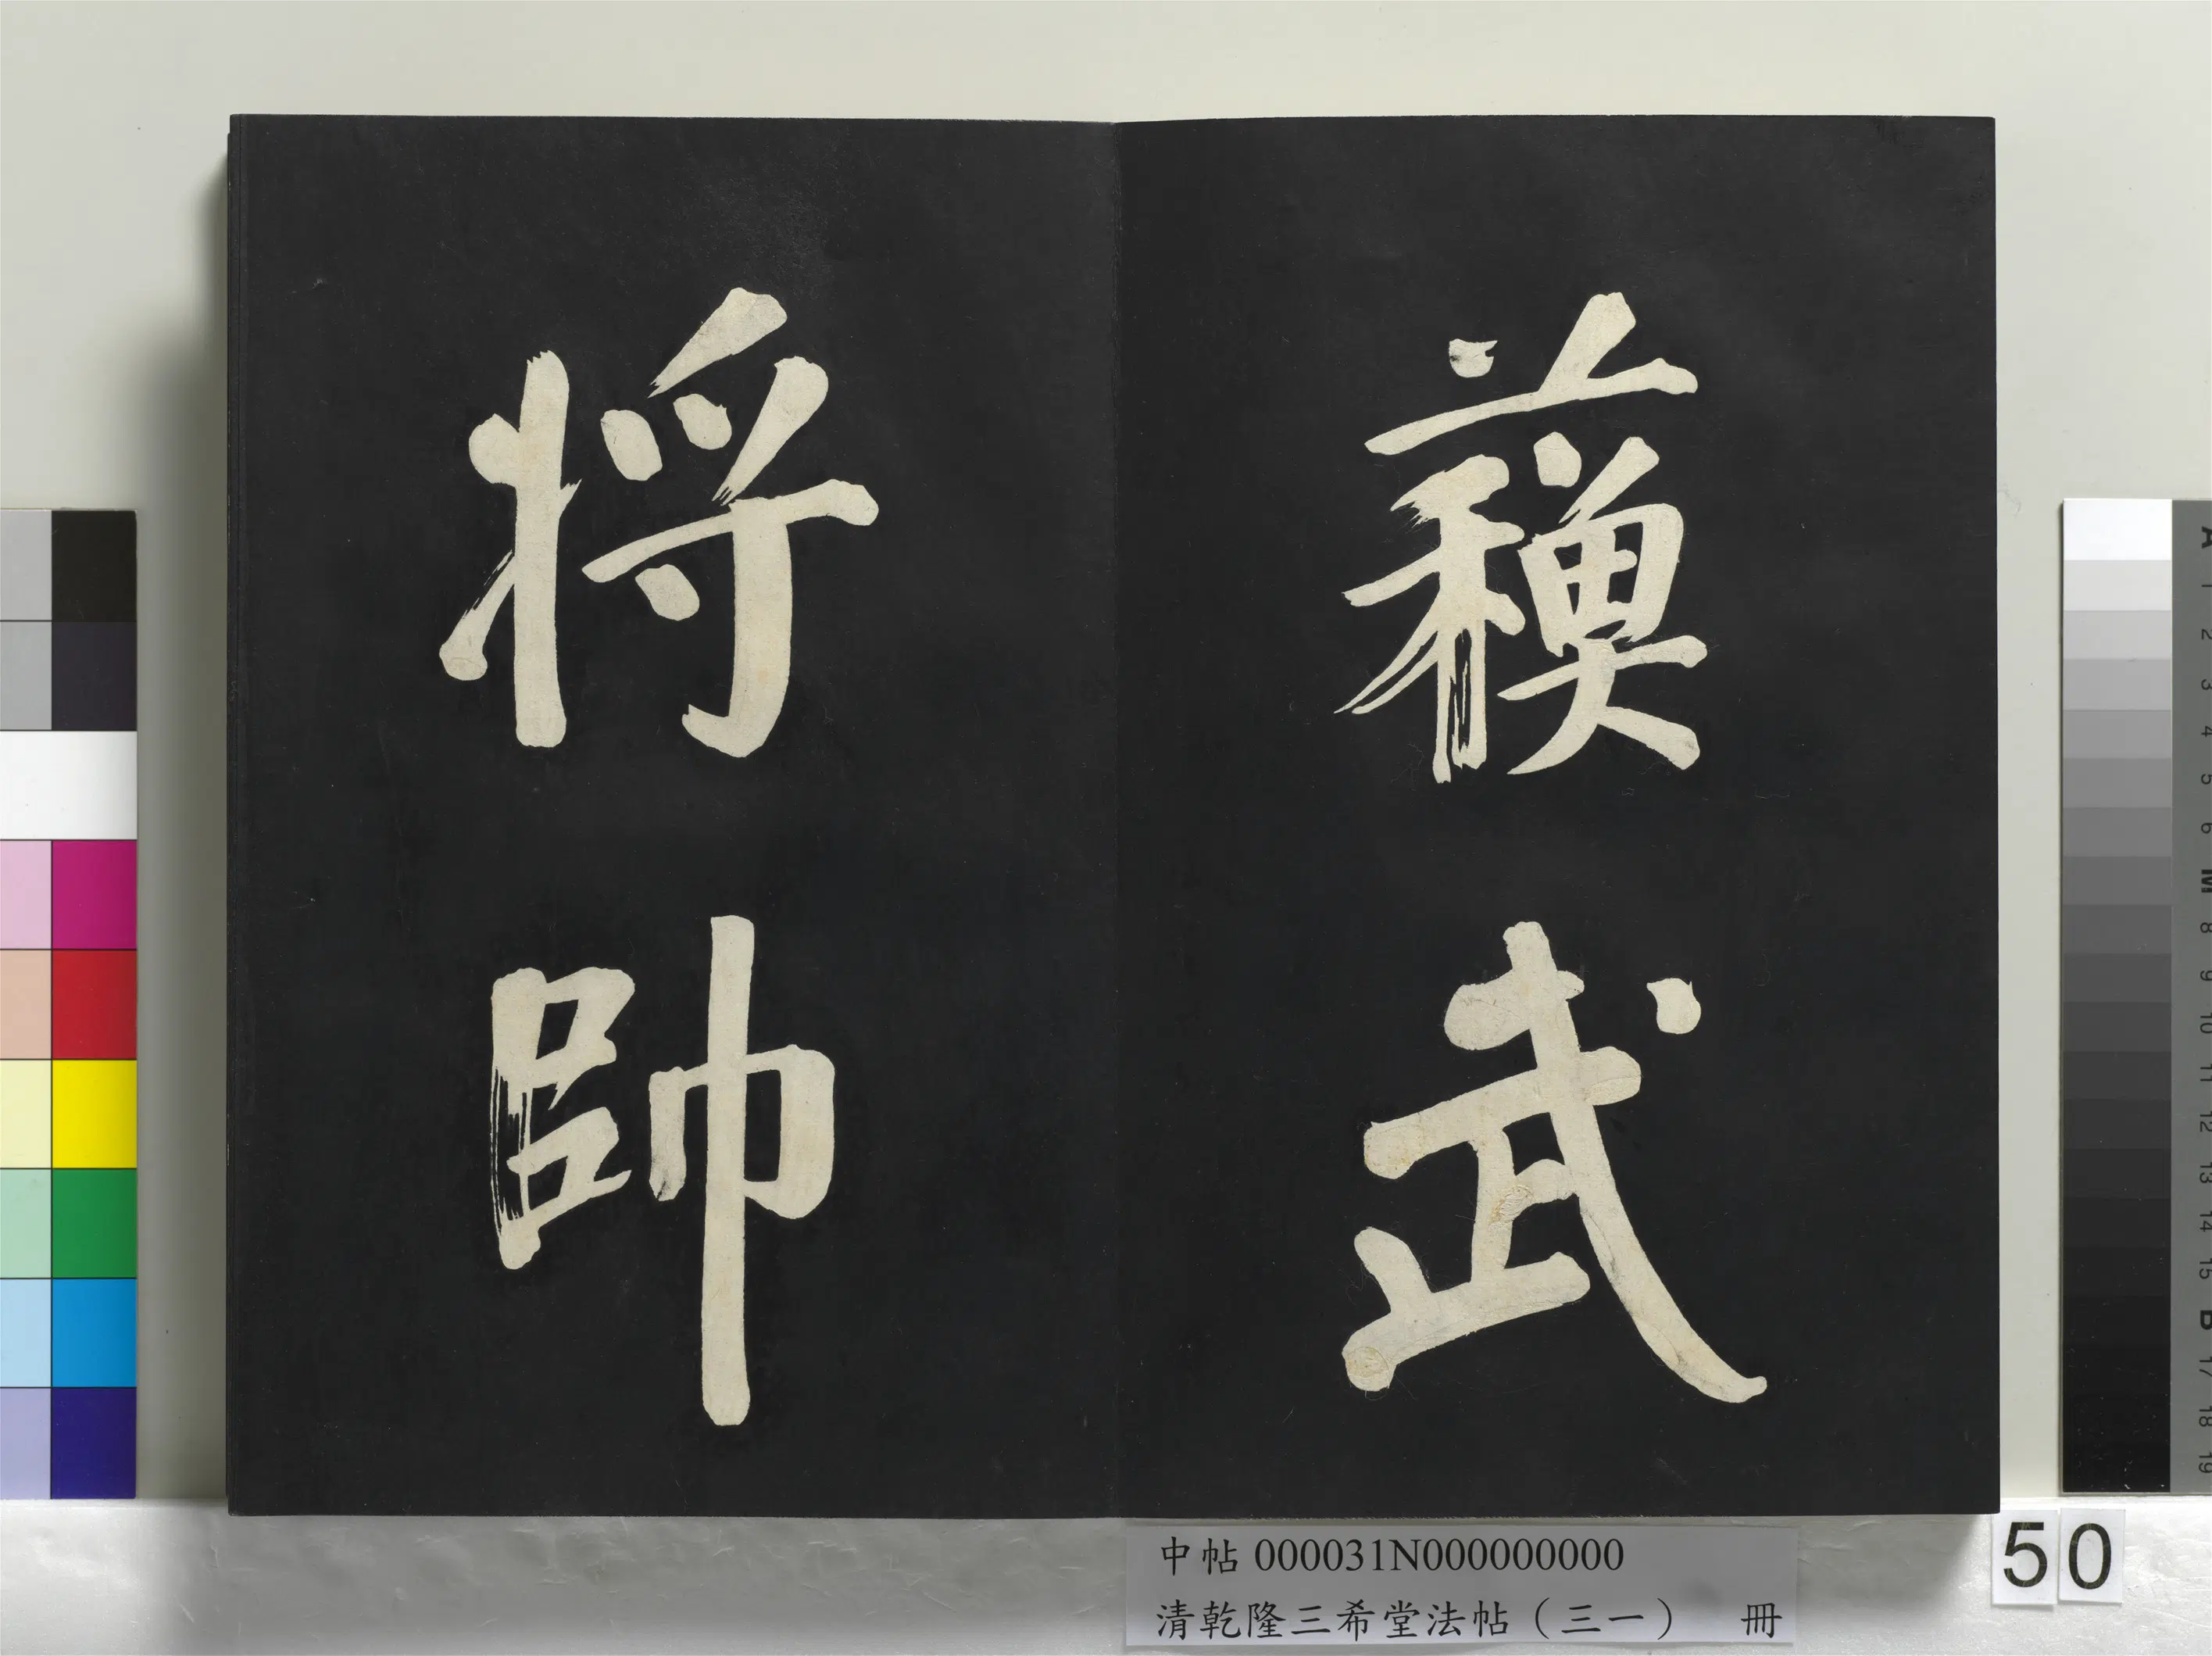 蘓武
将帥
中帖 000031N000000000
清乾隆三希堂法帖（三一） 冊
50
A 1 2 3 4 5 6 M 8 9 10 11 12 13 14 15 B 17 18 19